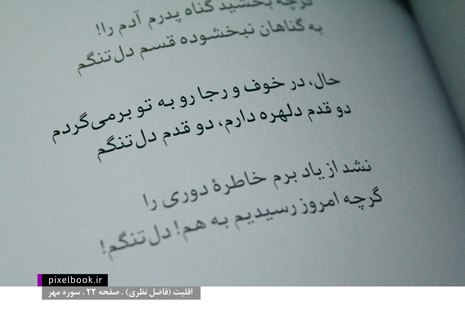 گرچه بخشید گناه پدرم آدم را!
به گناهان نبخشوده قسم دل‌تنگم
حال، در خوف و رجا رو به تو برمی‌گردم
دو قدم دلهره دارم، دو قدم دل‌تنگم
نشد از یاد برم خاطرهٔ دوری را
گرچه امروز رسیدیم به هم! دل‌تنگم!
pixelbook.ir
اقلیت (فاضل نظری) . صفحه ۲۲ . سوره مهر